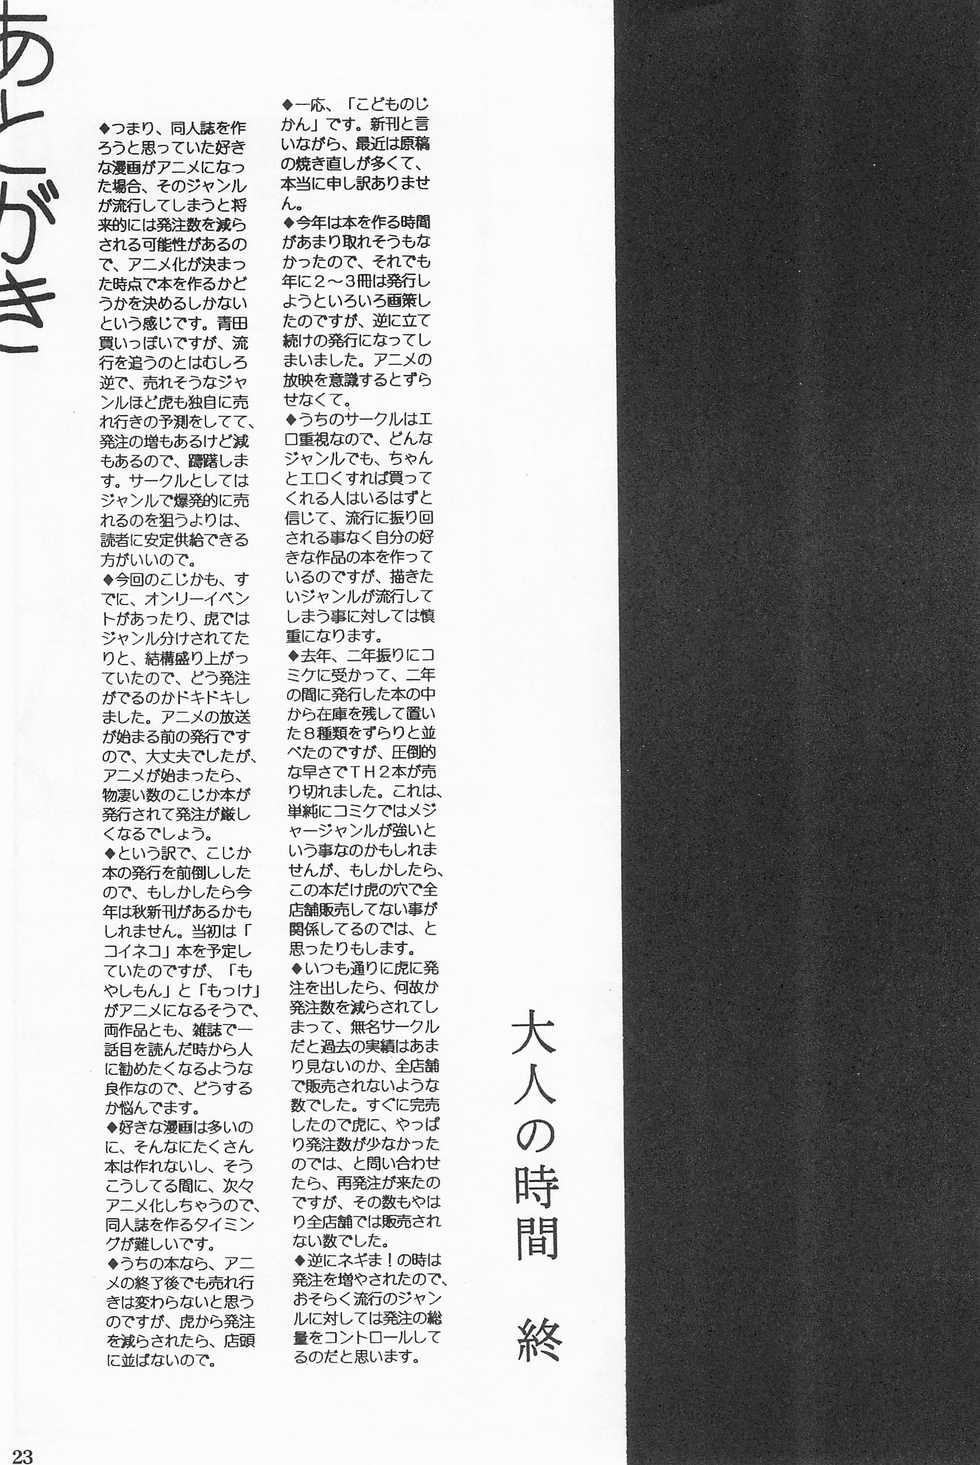 大人の時間　終
あとがき
◆一応、「こどものじ
かん」です。新刊と言
いながら、最近は原稿
の焼き直しが多くて、
本当に申し訳ありませ
ん。
◆今年は本を作る時間
があまり取れそうもな
かったので、それでも
年に２～３冊は発行し
ようといろいろ画策し
たのですが、逆に立て
続けの発行になってし
まいました。アニメの
放映を意識するとずら
せなくて。
◆うちのサークルはエ
ロ重視なので、どんな
ジャンルでも、ちゃん
とエロくすれば買って
くれる人はいるはずと
信じて、流行に振り回
される事なく自分の好
きな作品の本を作って
いるのですが、描きた
いジャンルが流行して
しまう事に対しては慎
重になります。
◆去年、二年振りにコ
ミケに受かって、二年
の間に発行した本の中
から在庫を残して置い
た８種類をずらりと並
べたのですが、圧倒的
な早さでＴＨ２本が売
り切れました。これは、
単純にコミケではメジ
ャージャンルが強いと
いう事なのかもしれま
せんが、もしかしたら、
この本だけ虎の穴で全
店舗販売してない事が
関係してるのでは、と
思ったりもします。
◆いつも通りに虎に発
注を出したら、何故か
発注数を減らされてし
まって、無名サークル
だと過去の実績はあま
り見ないのか、全店舗
で販売されないような
数でした。すぐに完売
したので虎に、やっぱ
り発注数が少なかった
のでは、と問い合わせ
たら、再発注が来たの
ですが、その数もやは
り全店舗では販売され
ない数でした。
◆逆にネギま！の時は
発注を増やされたので、
おそらく流行のジャン
ルに対しては発注の総
量をコントロールして
るのだと思います。
◆つまり、同人誌を作
ろうと思っていた好き
な漫画がアニメになっ
た場合、そのジャンル
が流行してしまうと将
来的には発注数を減ら
される可能性があるの
で、アニメ化が決まっ
た時点で本を作るかど
うかを決めるしかない
という感じです。青田
買いっぽいですが、流
行を追うのとはむしろ
逆で、売れそうなジャ
ンルほど虎も独自に売
れ行きの予測をしてて、
発注の増もあるけど減
もあるので、躊躇しま
す。サークルとしては
ジャンルで爆発的に売
れるのを狙うよりは、
読者に安定供給できる
方がいいので。
◆今回のこじかも、す
でに、オンリーイベン
トがあったり、虎では
ジャンル分けされてた
りと、結構盛り上がっ
ていたので、どう発注
がでるのかドキドキし
ました。アニメの放送
が始まる前の発行です
ので、大丈夫でしたが、
アニメが始まったら、
物凄い数のこじか本が
発行されて発注が厳し
くなるでしょう。
◆という訳で、こじか
本の発行を前倒しした
ので、もしかしたら今
年は秋新刊があるかも
しれません。当初は「
コイネコ」本を予定し
ていたのですが、「も
やしもん」と「もっけ」
がアニメになるそうで、
両作品とも、雑誌で一
話目を読んだ時から人
に勧めたくなるような
良作なので、どうする
か悩んでます。
◆好きな漫画は多いの
に、そんなにたくさん
本は作れないし、そう
こうしてる間に、次々
アニメ化しちゃうので、
同人誌を作るタイミン
グが難しいです。
◆うちの本なら、アニ
メの終了後でも売れ行
きは変わらないと思う
のですが、虎から発注
を減らされたら、店頭
に並ばないので。
23